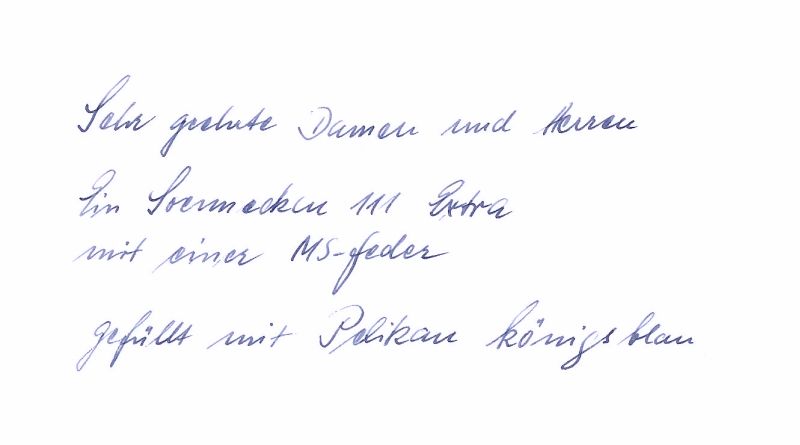 Sehr geehrte Damen und Herren
Ein Soennecken 111 Extra
mit einer MS-Feder
gefüllt mit Pelikan königsblau